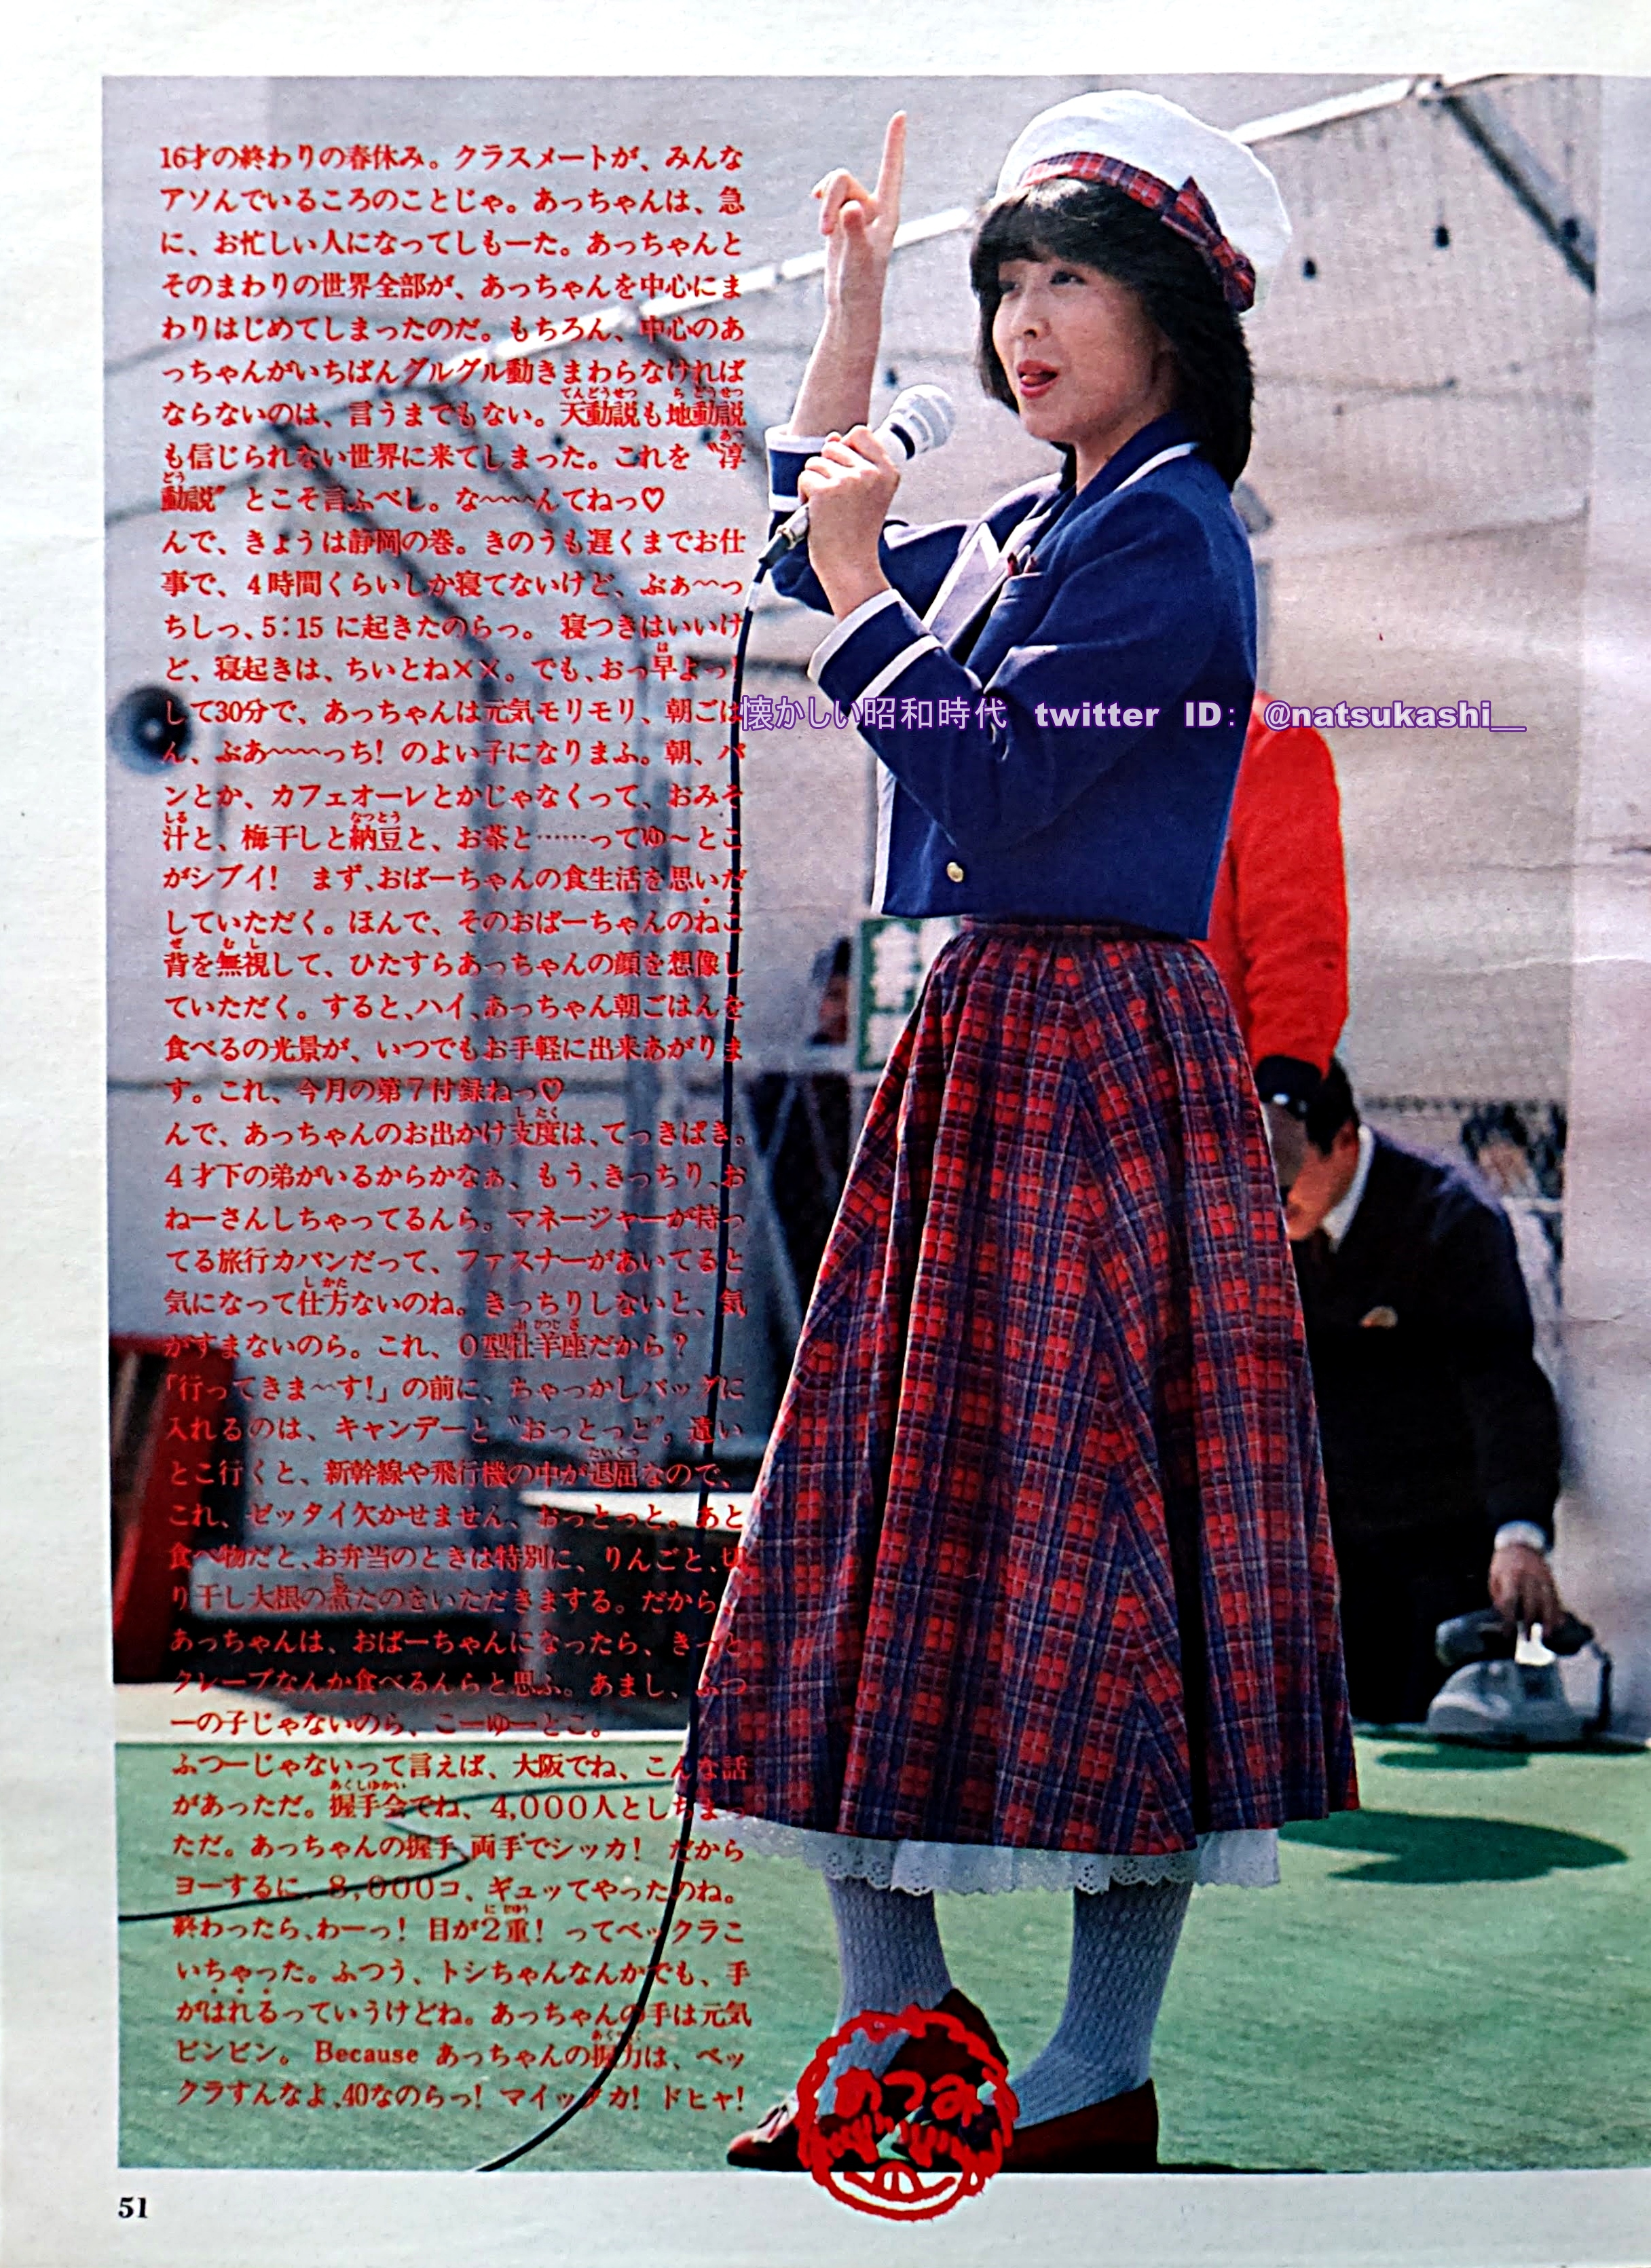 16才の終わりの春休み。クラスメートが、みんな
アソんでいるころのことじゃ。あっちゃんは、急
に、お忙しい人になってしもーた。あっちゃんと
そのまわりの世界全部が、あっちゃんを中心にま
わりはじめてしまったのだ。もちろん、中心のあ
っちゃんがいちばんグルグル動きまわらなければ
ならないのは、言うまでもない。天動説も地動説
も信じられない世界に来てしまった。これを〝淳
動説〟とこそ言ふべし。な~~~~んてねっ♡
んで、きょうは静岡の巻。きのうも遅くまでお仕
事で、4時間くらいしか寝てないけど、ぶぁ~~っ
ちしっ、5:15に起きたのらっ。寝つきはいいけ
ど、寝起きは、ちいとね××。でも、おっ早よっ!
して30分で、あっちゃんは元気モリモリ、朝ごは
ん、ぶあ~~~~っち! のよい子になりまふ。朝、パ
ンとか、カフェオーレとかじゃなくって、おみそ
汁と、梅干しと納豆と、お茶と……ってゆ~とこ
がシブイ! まず、おばーちゃんの食生活を思いだ
していただく。ほんで、そのおばーちゃんのねこ
背を無視して、ひたすらあっちゃんの顔を想像し
ていただく。すると、ハイ、あっちゃん朝ごはんを
食べるの光景が、いつでもお手軽に出来あがりま
す。これ、今月の第7付録ねっ♡
んで、あっちゃんのお出かけ支度は、てっきぱき。
4才下の弟がいるからかなぁ、もう、きっちり、お
ねーさんしちゃってるんら。マネージャーが持っ
てる旅行カバンだって、ファスナーがあいてると
気になって仕方ないのね。きっちりしないと、気
がすまないのら。これ、O型牡羊座だから?
「行ってきま~~す!」の前に、ちゃっかしバッグに
入れるのは、キャンデーと〝おっとっと〟。遠い
とこ行くと、新幹線や飛行機の中が退屈なので、
これ、ゼッタイ欠かせません、おっとっと。あと
食べ物だと、お弁当のときは特別に、りんごと、切
り干し大根の煮たのをいただきまする。だから、
あっちゃんは、おばーちゃんになったら、きっと
クレープなんか食べるんらと思ふ。あまし、ふつ
ーの子じゃないのら、こーゆーとこ。
ふつーじゃないって言えば、大阪でね、こんな話
があっただ。握手会でね、4,000人としちまっ
ただ。あっちゃんの握手、両手でシッカ! だから
ヨーするに、8,000コ、ギュッてやったのね。
終わったら、わーっ! 目が2重! ってベックラこ
いちゃった。ふつう、トシちゃんなんかでも、手
がはれるっていうけどね。あっちゃんの手は元気
ピンピン。Because あっちゃんの握力は、ベッ
クラすんなよ、40なのらっ! マイッタカ! ドヒャ!
懐かしい昭和時代 twitter ID: @natsukashi__
あつみ
51